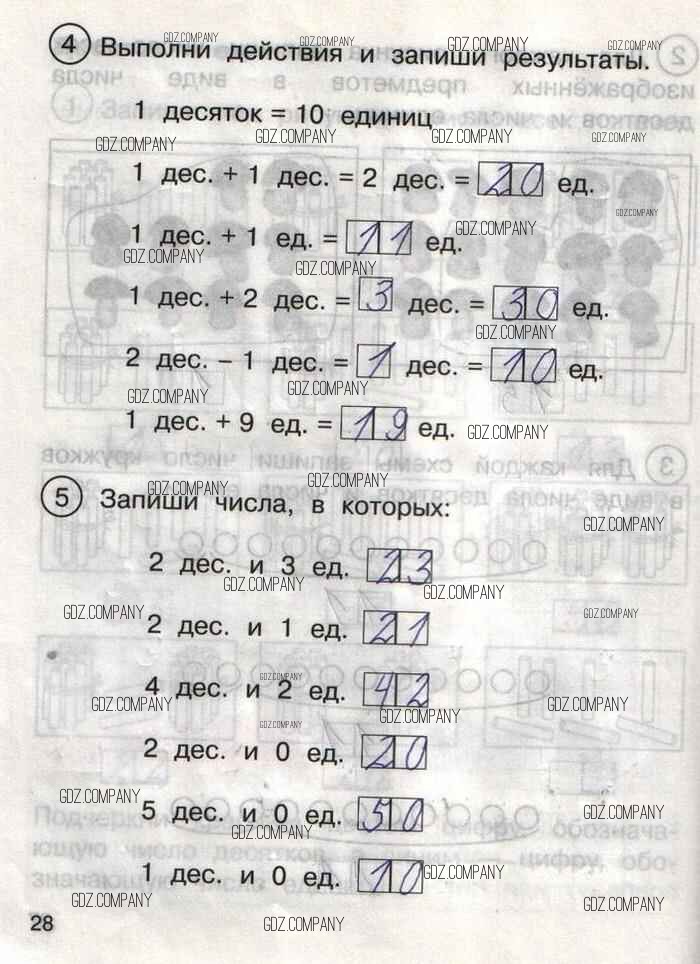 4 Выполни действия и запиши результаты.
1 десяток = 10 единиц
1 дес. + 1 дес. = 2 дес. = 20 ед.
1 дес. + 1 ед. = 11 ед.
1 дес. + 2 дес. = 3 дес. = 30 ед.
2 дес. – 1 дес. = 1 дес. = 10 ед.
1 дес. + 9 ед. = 19 ед.
5 Запиши числа, в которых:
2 дес. и 3 ед. 23
2 дес. и 1 ед. 21
4 дес. и 2 ед. 42
2 дес. и 0 ед. 20
5 дес. и 0 ед. 50
1 дес. и 0 ед. 10
28
GDZ.COMPANY